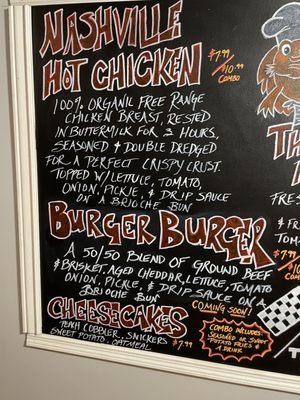 NASHVILLE
HOT CHICKEN
$7.99
$10.99
COMBO
100% ORGANIC FREE RANGE
CHICKEN BREAST, RESTED
IN BUTTERMILK FOR 2 HOURS,
SEASONED & DOUBLE DREDGED
FOR A PERFECT CRISPY CRUST.
TOPPED W/ LETTUCE, TOMATO,
ONION, PICKLE & DRIP SAUCE
ON A BRIOCHE BUN
BURGER BURGER
A 50/50 BLEND OF GROUND BEEF
& BRISKET, AGED CHEDDAR, LETTUCE, TOMATO
ONION, PICKLE, & DRIP SAUCE ON A
BRIOCHE BUN
CHEESECAKES
PEACH COBBLER, SNICKERS
SWEET POTATO, OATMEAL
$7.99
COMING SOON!
COMBO INCLUDES:
SEASONED OR SWEET
POTATO FRIES &
A DRINK
$7.99